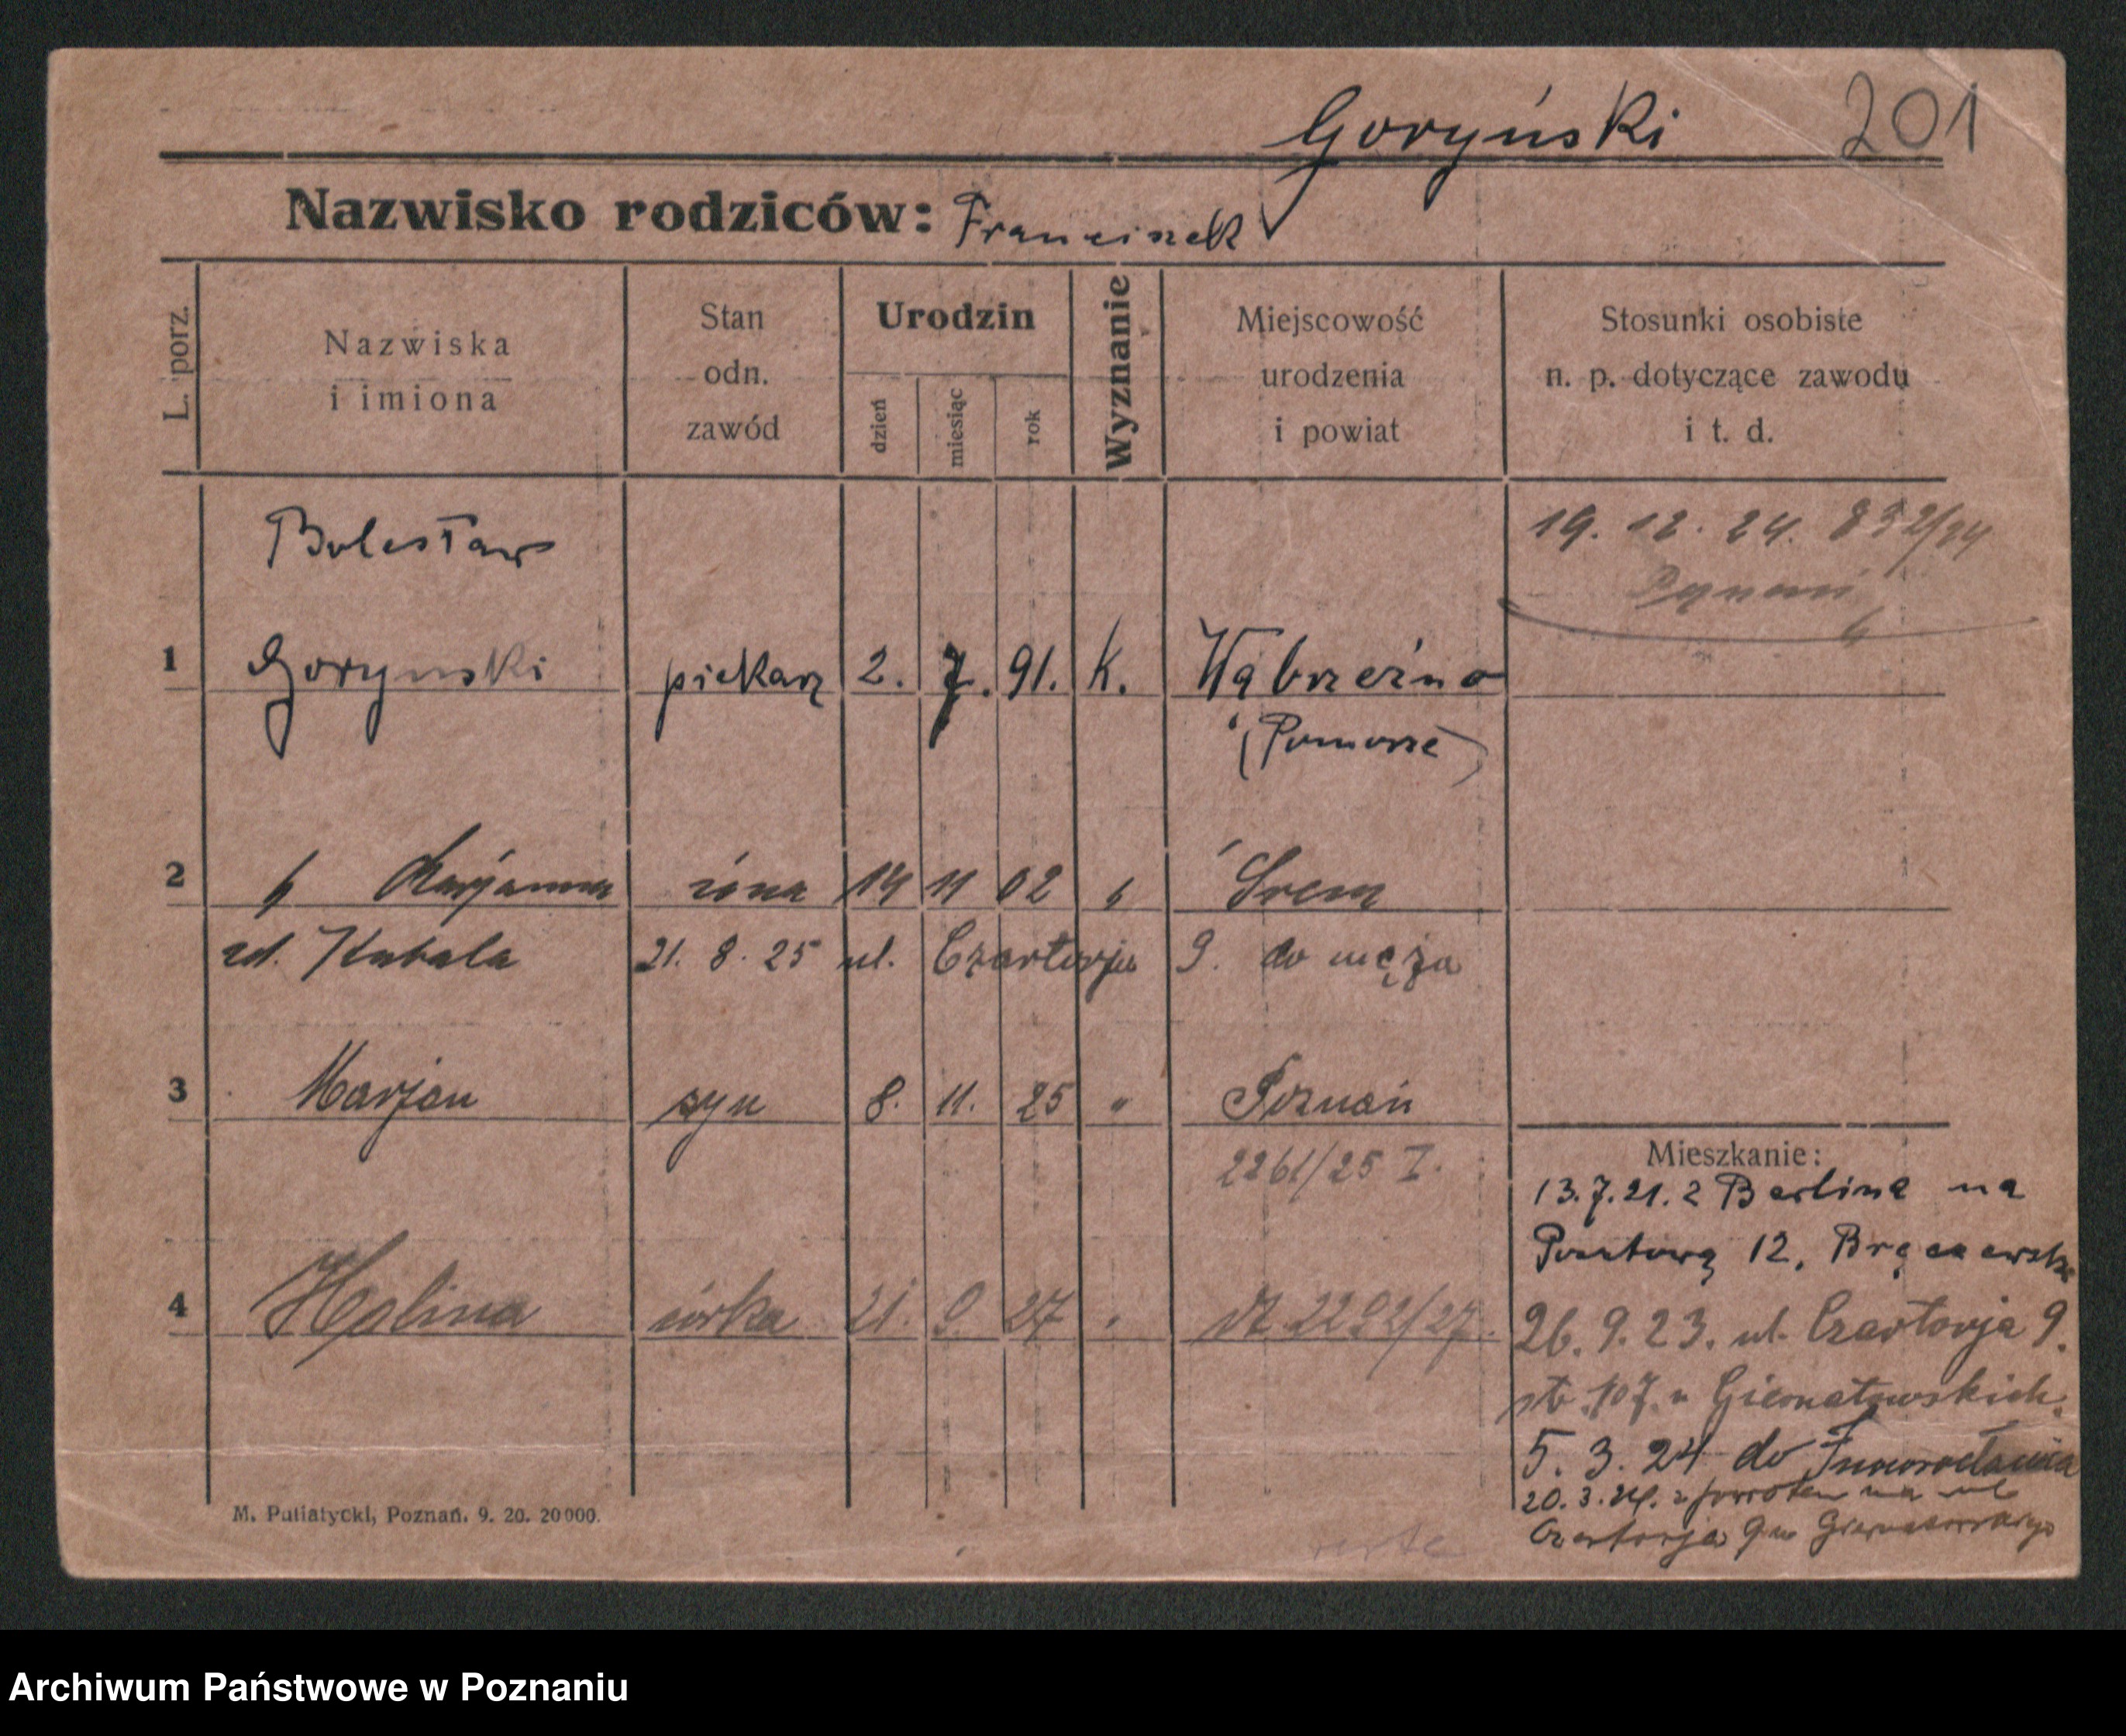 Goryński 201
Nazwisko rodziców: Franciszek
L. porz.
Nazwiska
i imiona
Stan
odn.
zawód
Urodzin
dzień
miesiąc
rok
Wyznanie
Miejscowość
urodzenia
i powiat
Stosunki osobiste
n. p. dotyczące zawodu
i t. d.
19. 12. 24. 832/24
Bolesław
1 Gorynski piekarz 2. 7. 91. k. Wąbrzeźno
(Pomorze)
2 " Marjanna żona 14 11 02 " Śrem
zd. Kubala 21. 8. 25 ul. Czartorja 9. do męża
3 Marjan syn 8. 11. 25 " Poznań
2261/25 I.
4 Halina córka 21. 9. 27 " 2292/27.
Mieszkanie:
13.7.21. z Berlina na
Pocztową 12,
26. 9. 23. ul. Czartorja 9.
5. 3. 24 do Inowrocławia
20. 3. 24. z powrotem na ul
Czartorja 9
M. Putiatycki, Poznań. 9. 20. 20000.
Archiwum Państwowe w Poznaniu